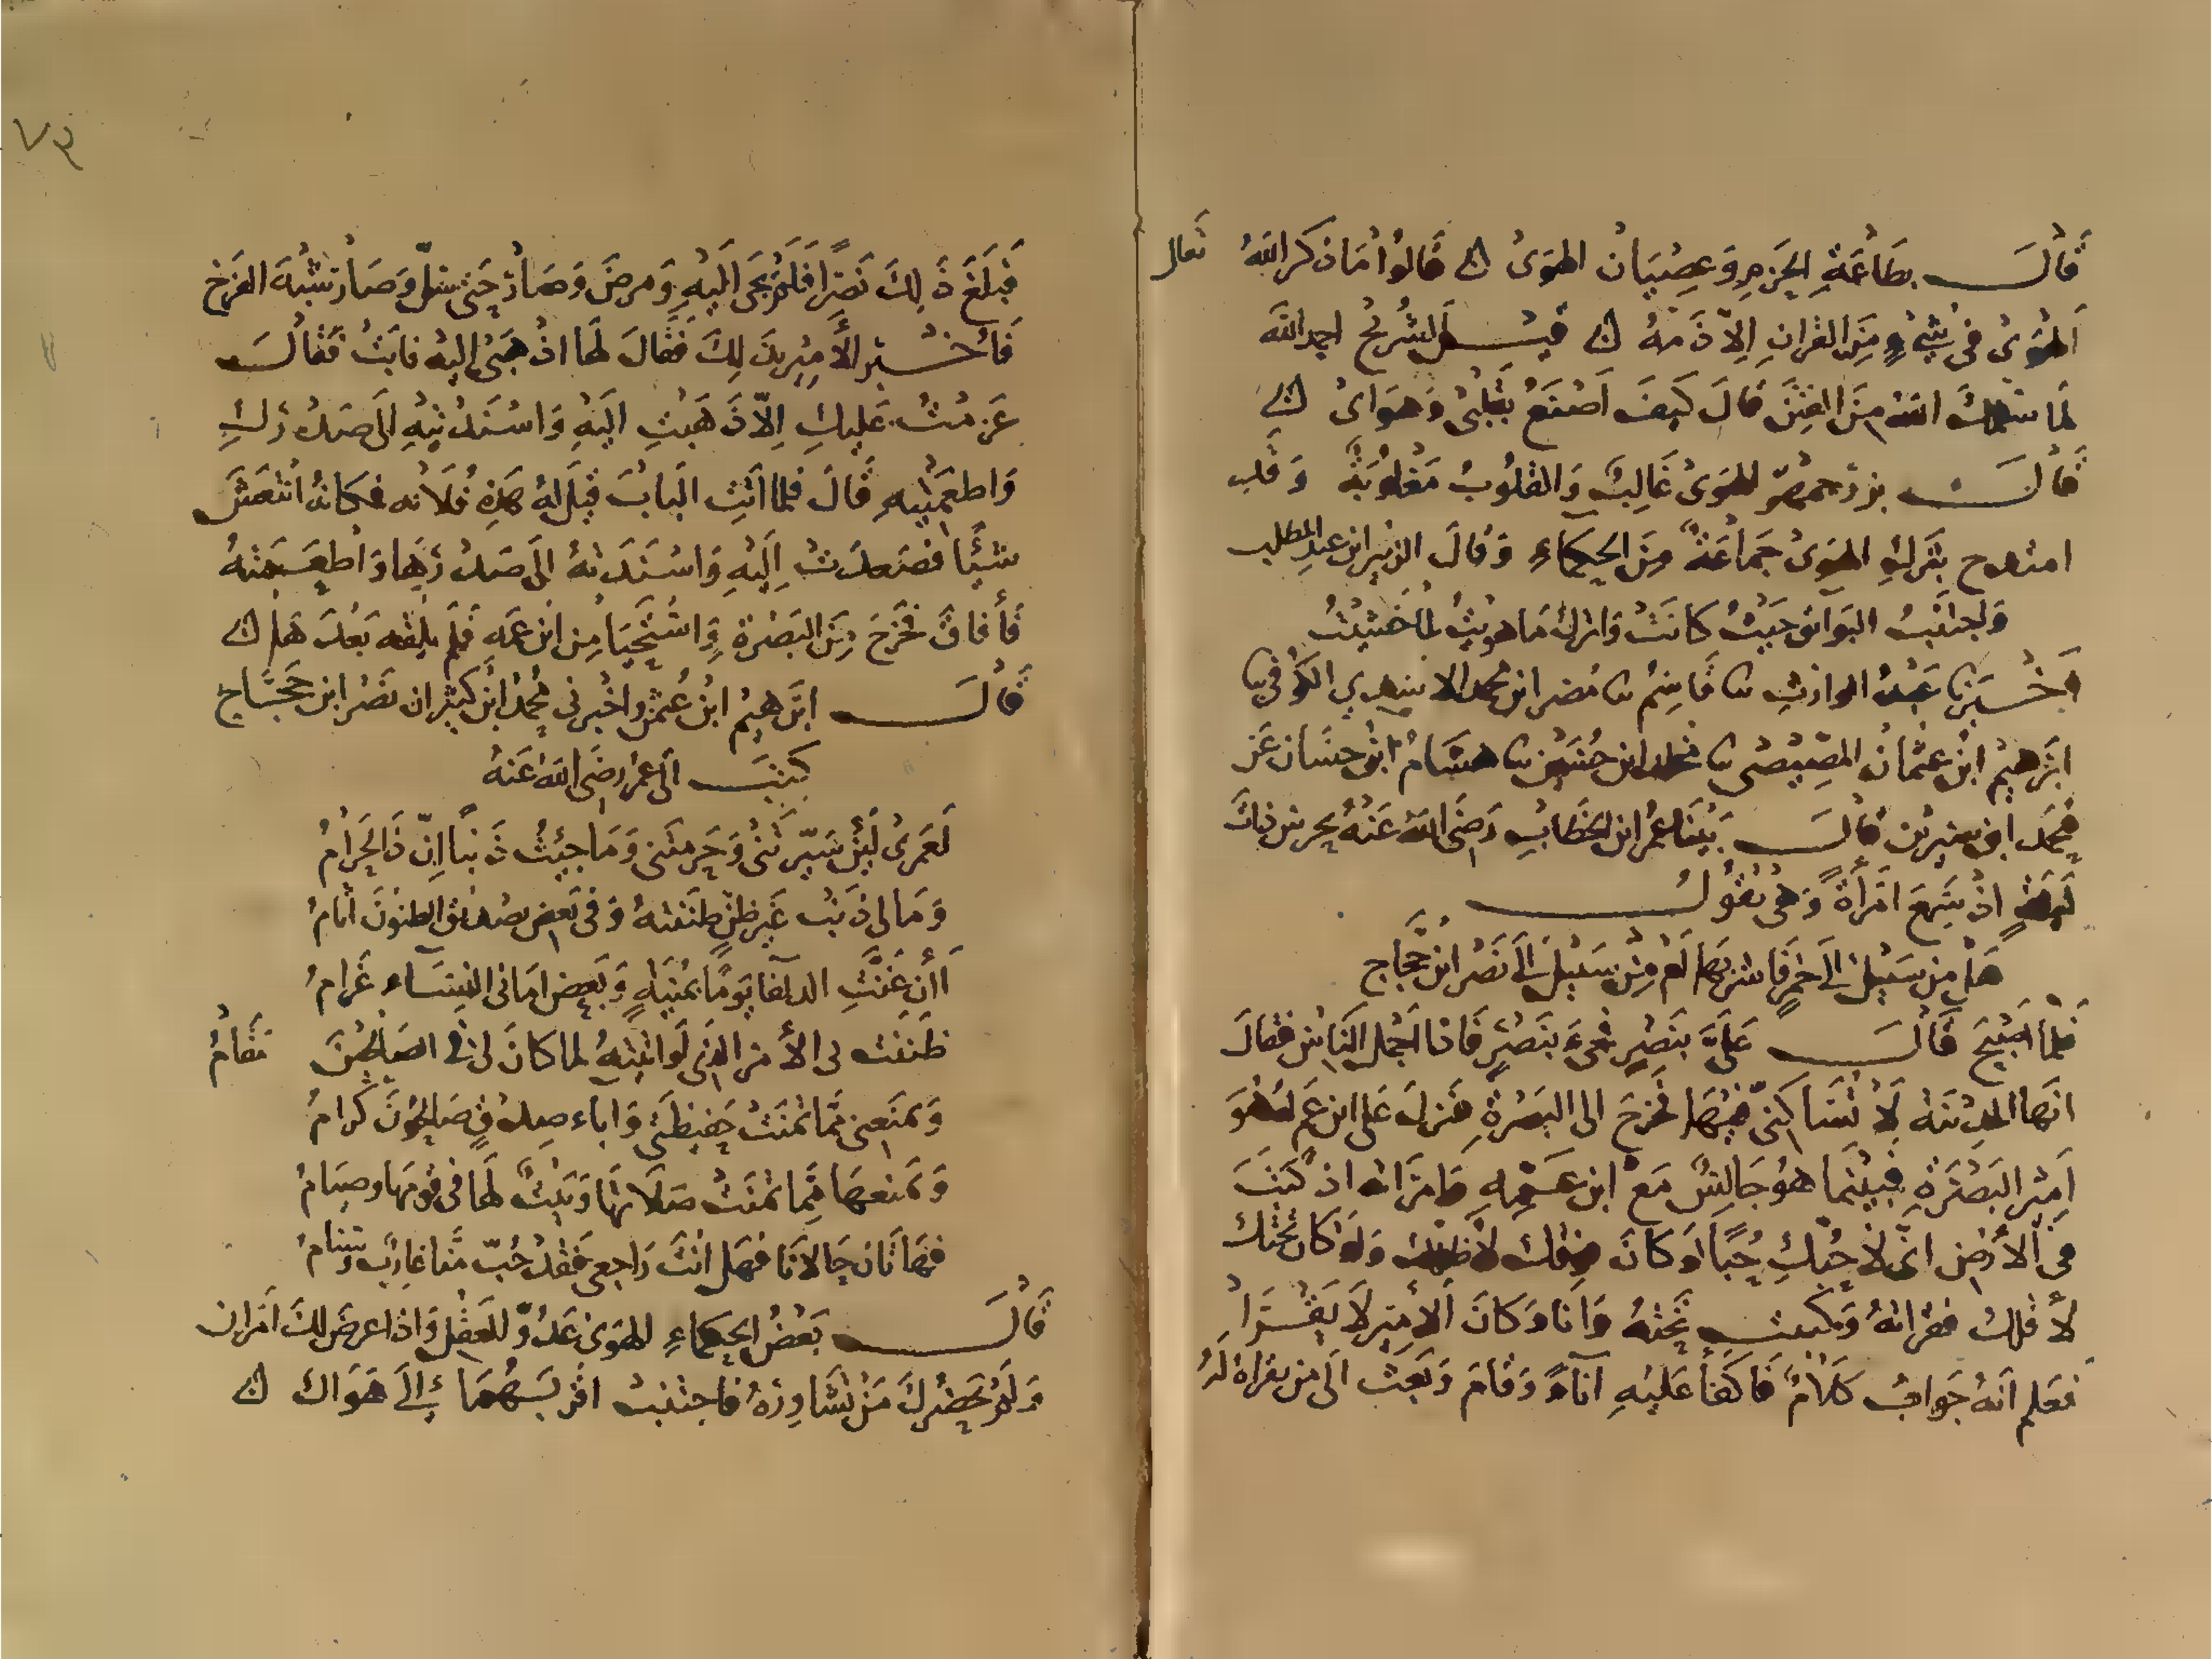 قَالَ بِطَاعَةِ الحَزمِ وَعِصْيَانِ الهَوَىٰ ۞ قَالُوا مَا ذكر اللهُ تعالى
الهَوىٰ في شَيْءٍ مِنَ القرانِ اِلّا ذَمّهُ ۞ قيل لِشُرَيْحُ احمد الله
لمَا سَلّمكَ الله مِنَ الفِتَنِ قَالَ كَيفَ اَصْنَعُ بقَلبي وَهوَايْ ۞
قَالَ بزرجمهر الهَوىٰ غَالِبٌ وَالقلُوبُ مَغلوُبَةٌ وَقَد
امتدح بتركِ الهَوىٰ جَمَاعَةٌ مِنَ الحكماءِ وَقالَ الزبير ابن عبدِ المطلب
وَاجتَنِبُ البَوَائق حَيْثُ كَانَتْ وَاترك مَا هويْتُ لمَا خَشيْتُ
اَخْبَرَنا عَبْدُ الوارثِ نا قَاسِمُ نا مُضر ابن محمد الاسَدِي الكُوفي نا
ابرَهِيمُ ابْن عثمَان المصّيصُى نا مخلد ابن حُسَيْن نا هشَامُ ابْن حسَان عَن
مُحَمد ابن سيرين قالَ بَيْنَا عُمرُ ابن الخَطابِ رَضيَ الله عَنهُ يحرس ذاتَ
لَيلَةٍ اذ سَمِعَ امرَأةً وَهي تقُولُ
هَل مِن سَبيل الى خمرٍ فَاشربهَا اَم مِنْ سَبيل الى نَصْر ابن حَجّاج
فَلمّا اَصْبَحَ قَالَ عَليَّ بنَصْرٍ فجيءَ بنَصْرٍ فَاذا اَجمل النَاسِ فقالَ
انهَا المدِينة لَا تُسَاكِنّي فيْهَا فخرَجَ الى البَصْرَةِ فنزلَ عَلى ابن عَم لهُ هوَ
اَمِيْر البَصْرَةِ فَبينَما هوَ جَالِسٌ مَعْ ابن عَمّهِ وَامرَاته اذ كَتبَ
في الأرْضِ اني لاحبكِ حُبًّا لوَ كانَ فوقك لأظلك وَلَو كان تحتك
لأقلك فقرَاتهُ وَكتبت تَحتهُ وَانَا وَكانَ الأميْر لَا يَقْرَا
فعَلم اَنهُ جَوابُ كَلامٌ فَاكفأ عَليْهِ اناءً وَقامَ وَبَعث الى مَن يقراهُ لَهُ
٧٩
فَبَلغَ ذَلِكَ نَصْرًا فَلَمْ يجَي اليْهِ وَمرضَ وَصَارَ حَتى سلّ وَصَار شبْهَ الفرخ
فَاُخْبر الأمِيْر بذَلِكَ فقالَ لهَا اذْهَبي اليهِ فابَتْ فقَالَ
عَزمْتُ عَليكِ اِلّا ذَهَبتِ اليْهِ وَاسْنَدْتيهِ الى صَدْركِ
وَاطعمَيْهِ قَالَ فلما اتتِ البَابَ قيْلَ لهُ هَذِهِ فُلَانه فكانهُ انتعَشَ
شَيْئًا فصَعدَتْ اِليْهِ وَاسْنَدَتهُ الى صَدْرِهَا وَاطعَمتهُ
فَأفاقَ فخَرَجَ مِنَ البَصْرةِ وَاسْتَحْيَا مِن ابن عَمهِ فَلم يلقه بَعْدَهَا ۞
قَالَ ابرَهيمُ ابْن عُثمن وَاخْبرني مُحمدُ ابْن كَثير ان نَصْر ابن حَجّاج
كَتبَ الى عمر رَضيَ الله عَنهُ
لَعَمرىْ لَئِن سَيّرتَنى وَحَرمتَنى وَمَا جئتُ ذَنباً انّ ذَا لحَرَامُ
وَمَا لي ذنبْ غَير ظنٍّ ظنَنتهُ وَفي بَعض تصْديق الظنونَ اثامُ
اَأن غَنّتِ الدلفَا يَومًا بمُنيَةٍ وَبَعض امَاني النِسَاء غرَامُ
ظَنَنت بي الأمر الذي لَو اتيْتهُ لما كانَ لي في الصَالحيْنَ مَقَامُ
وَيَمنَعني ممّا تمنَتْ حَفيظتي وَاباء صِدْقٍ صَالحُونَ كرَامُ
وَيمَنعهَا ممّا تمنَتْ صَلَاتهَا وَبَيْتٌ لهَا في قومهَا وصِيَامُ
فهَاتَان حَالَانَا فهَل اَنتَ رَاجعي فَقدْ جُبّ مِنّا غارب وسنَامُ
قَالَ بَعْضُ الحكماءِ الهَوىٰ عَدُوّ للعَقْل وَاذا عرضَ لكَ امرَان
وَلَم يَحضُركَ مَنْ تشَاورهُ فاجتنبْ اقربَهُمَا إلى هَوَاكَ ۞